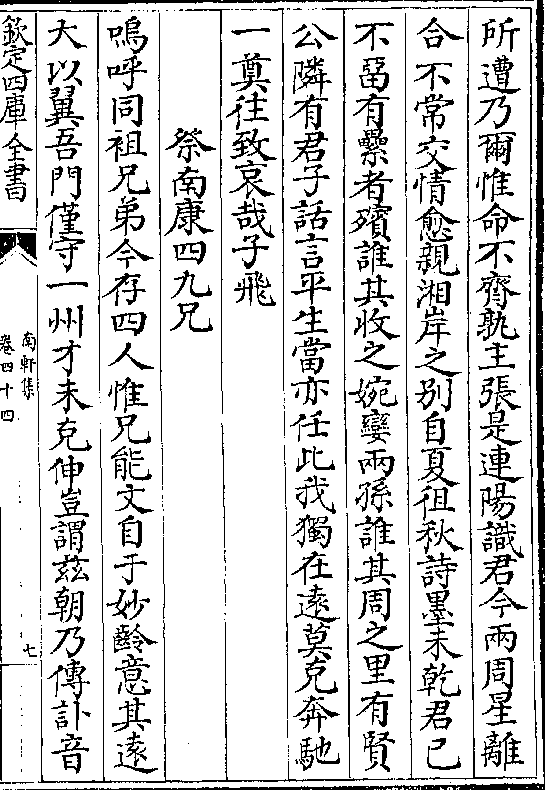 所遭乃爾惟命不齊孰主張是連陽識君今兩周星離
合不常交情愈親湘岸之别自夏徂秋詩墨未乾君已
不畱有纍者殯誰其收之婉孌兩孫誰其周之里有賢
公隣有君子話言平生當亦任此我獨在逺莫克奔馳
一奠往致哀哉子飛
祭南康四九兄
嗚呼同祖兄弟今存四人惟兄能文自于妙齡意其逺
大以翼吾門僅守一州才未克伸豈謂玆朝乃傳訃音
欽定四庫全書
南軒集
卷四十四
七